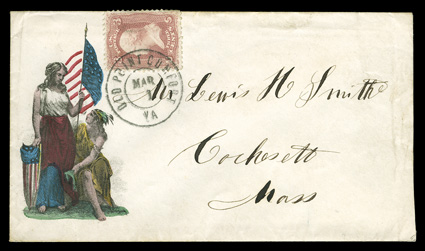 OLD POINT COMFORT
MAR
VA
Mr Lewis H Smith
Cochesett
Mass